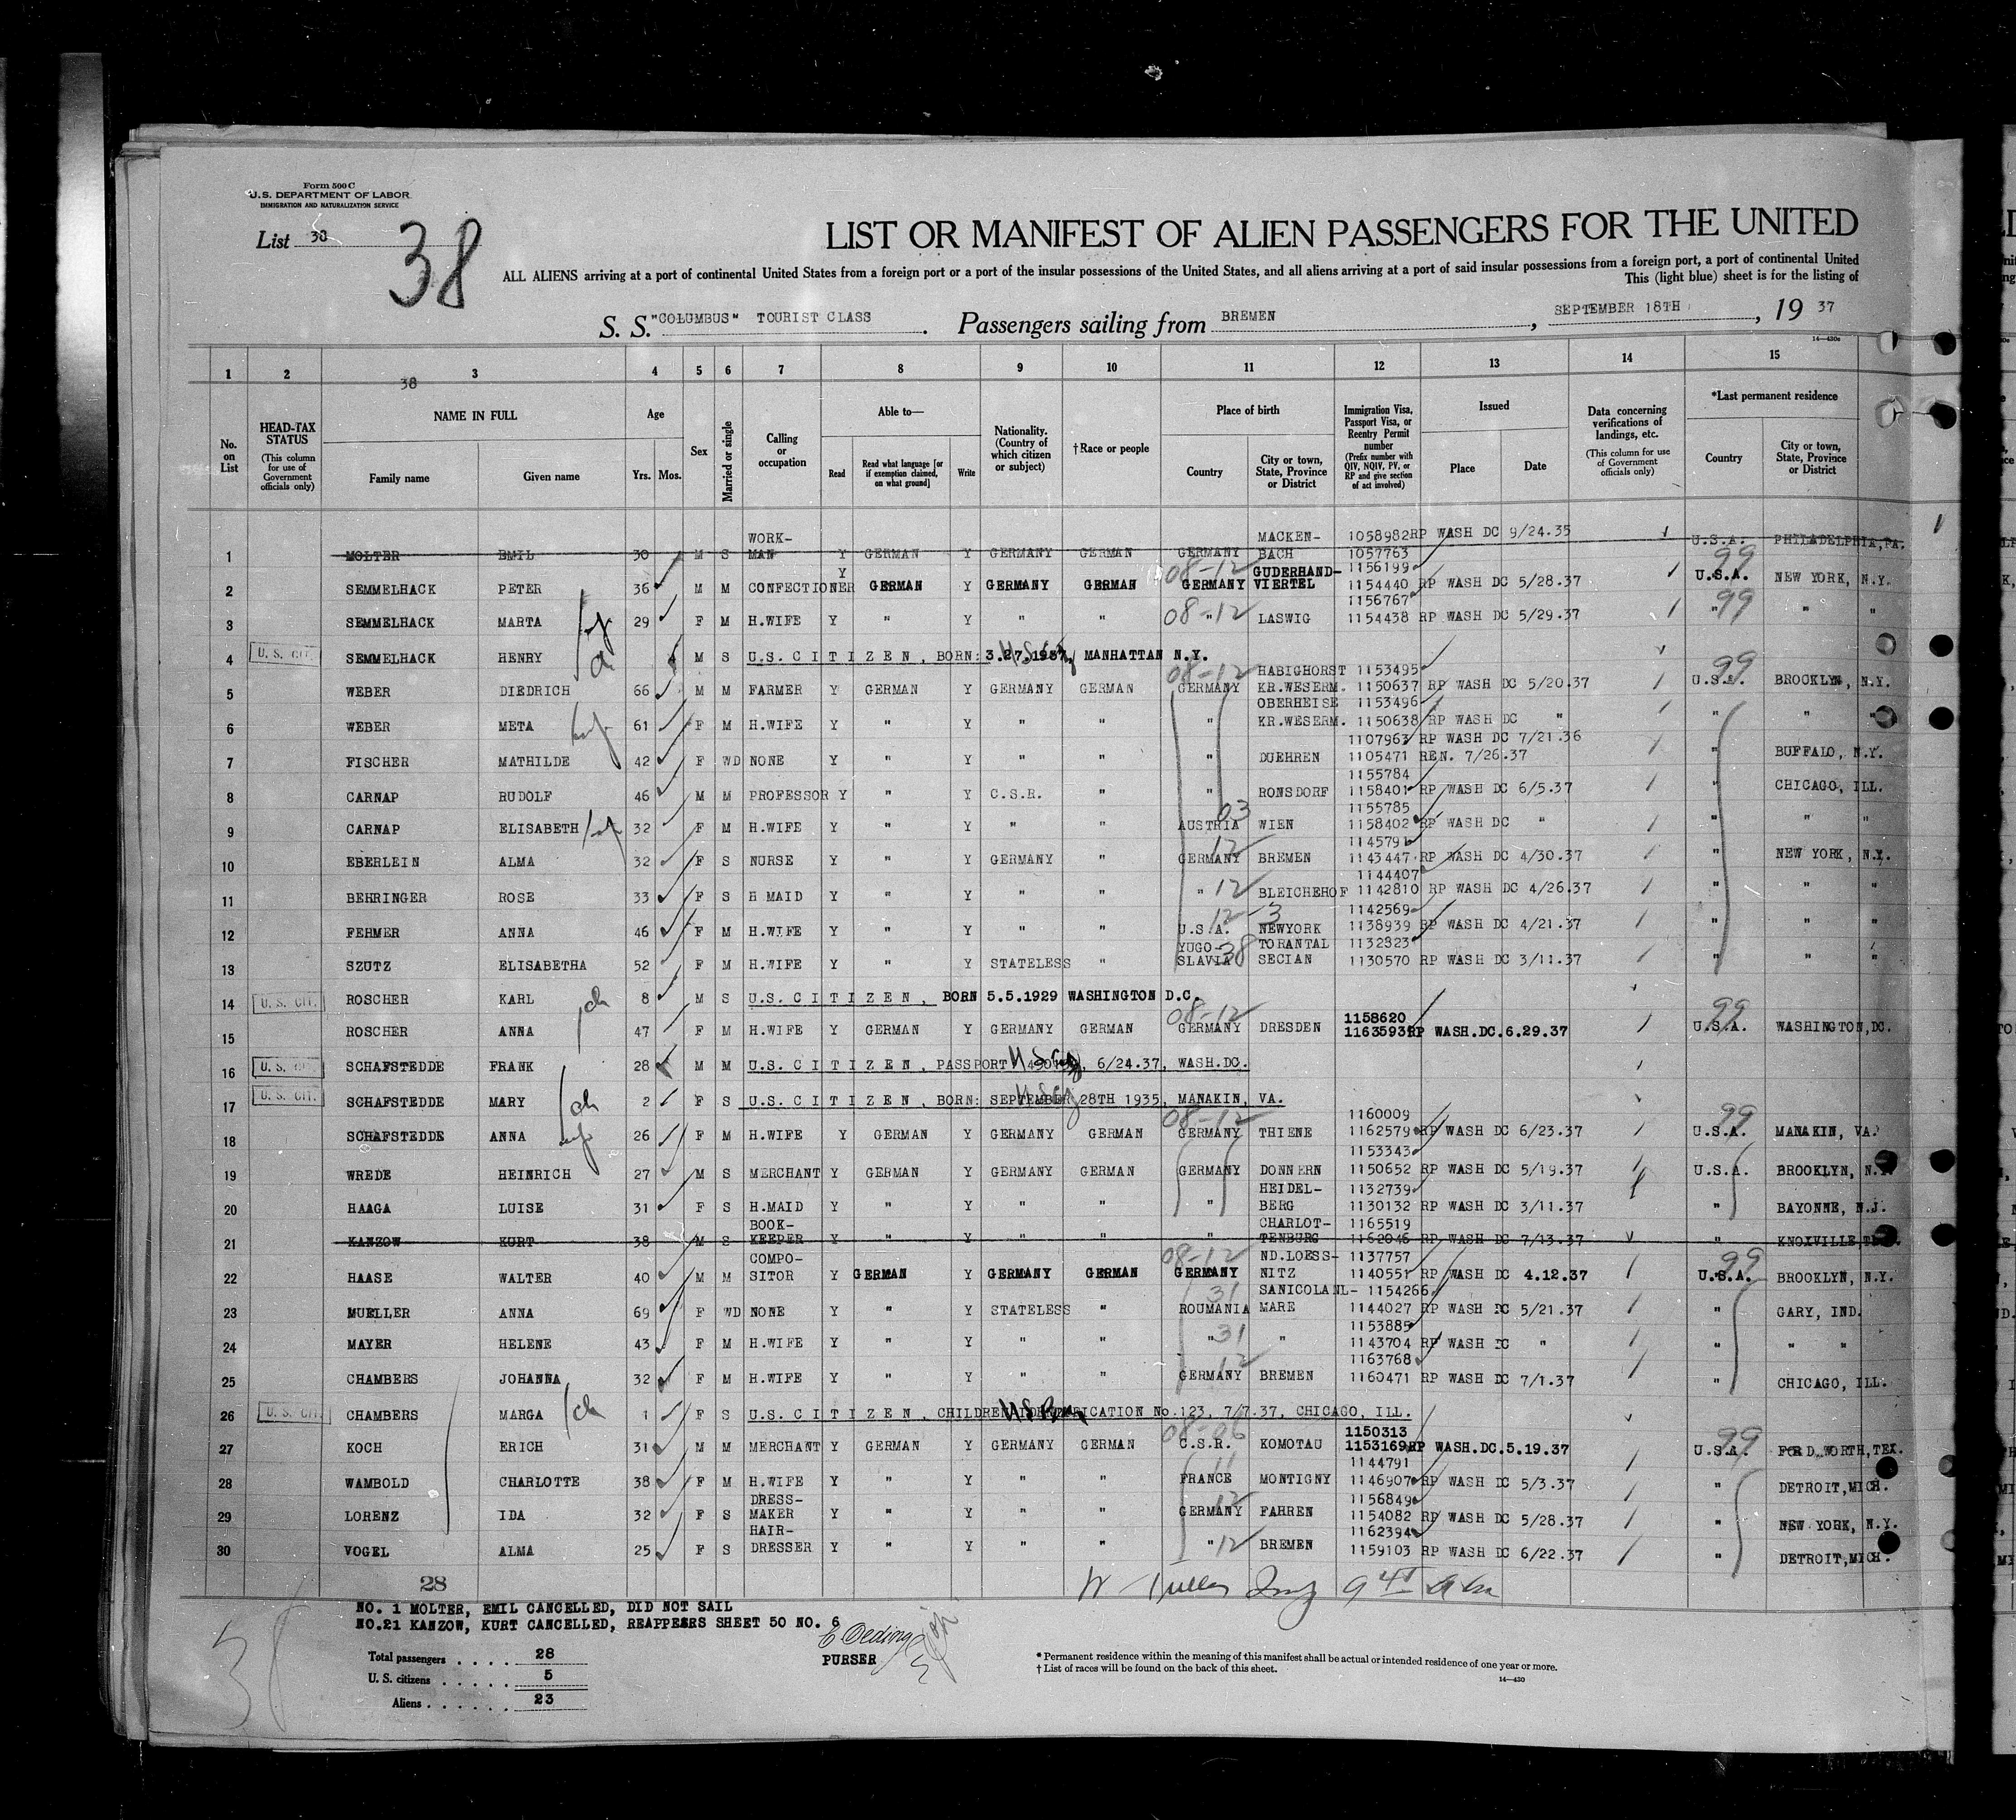 Form 500 C
U.S. DEPARTMENT OF LABOR
IMMIGRATION AND NATURALIZATION SERVICE
List 38
38
LIST OR MANIFEST OF ALIEN PASSENGERS FOR THE UNITED
ALL ALIENS arriving at a port of continental United States from a foreign port or a port of the insular possessions of the United States, and all aliens arriving at a port of said insular possessions from a foreign port, a port of continental United
This (light blue) sheet is for the listing of
S. S. "COLUMBUS" TOURIST CLASS . Passengers sailing from BREMEN , SEPTEMBER 18TH , 19 37
14—430c
1 2 3 4 5 6 7 8 9 10 11 12 13 14 15
38
No. on List
HEAD-TAX STATUS (This column for use of Government officials only)
NAME IN FULL Family name Given name
Age Yrs. Mos.
Sex
Married or single
Calling or occupation
Able to— Read Read what language [or if exemption claimed, on what ground] Write
Nationality. (Country of which citizen or subject)
† Race or people
Place of birth Country City or town, State, Province or District
Immigration Visa, Passport Visa, or Reentry Permit number (Prefix number with QIV, NQIV, PV, or RP and give section of act involved)
Issued Place Date
Data concerning verifications of landings, etc. (This column for use of Government officials only)
*Last permanent residence Country City or town, State, Province or District
1 MOLTER EMIL 30 M S WORK-MAN Y GERMAN Y GERMANY GERMAN GERMANY MACKEN-BACH 1058982 1057763 RP WASH DC 9/24.35 U.S.A. PHILADELPHIA,PA.
2 SEMMELHACK PETER 36 M M CONFECTIONER Y GERMAN Y GERMANY GERMAN 08-12 GERMANY GUDERHAND-VIERTEL 1156199 1154440 RP WASH DC 5/28.37 99 U.S.A. NEW YORK, N.Y.
3 SEMMELHACK MARTA 29 F M H.WIFE Y " Y " " 08-12 " LASWIG 1156767 1154438 RP WASH DC 5/29.37 99 " " "
4 U. S. CIT. SEMMELHACK HENRY M S U.S. CITIZEN, BORN: 3.27.1937, MANHATTAN N.Y.
5 WEBER DIEDRICH 66 M M FARMER Y GERMAN Y GERMANY GERMAN 08-12 GERMANY HABIGHORST KR.WESERM. 1153495 1150637 RP WASH DC 5/20.37 99 U.S.A. BROOKLYN, N.Y.
6 WEBER META 61 F M H.WIFE Y " Y " " " OBERHEISE KR.WESERM. 1153496 1150638 RP WASH DC " " " "
7 FISCHER MATHILDE 42 F WD NONE Y " Y " " " DUEHREN 1107963 1105471 RP WASH DC 7/21.36 REN. 7/26.37 " BUFFALO, N.Y.
8 CARNAP RUDOLF 46 M M PROFESSOR Y " Y C.S.R. " " RONSDORF 1155784 1158401 RP WASH DC 6/5.37 " CHICAGO, ILL.
9 CARNAP ELISABETH 32 F M H.WIFE Y " Y " " 03 AUSTRIA WIEN 1155785 1158402 RP WASH DC " " " "
10 EBERLEIN ALMA 32 F S NURSE Y " Y GERMANY " 12 GERMANY BREMEN 1143447 RP WASH DC 4/30.37 " NEW YORK, N.Y.
11 BEHRINGER ROSE 33 F S H MAID Y " Y " " " 12 BLEICHEHOF 1144407 1142810 RP WASH DC 4/26.37 " " "
12 FEHMER ANNA 46 F M H.WIFE Y " Y " " 12-3 U.S.A. NEWYORK 1142569 1138939 RP WASH DC 4/21.37 " " "
13 SZUTZ ELISABETHA 52 F M H.WIFE Y " Y STATELESS " YUGO-SLAVIA 38 TORANTAL SECIAN 1132323 1130570 RP WASH DC 3/11.37 " " "
14 U. S. CIT. ROSCHER KARL 8 M S U.S. CITIZEN, BORN 5.5.1929 WASHINGTON D.C.
15 ROSCHER ANNA 47 F M H.WIFE Y GERMAN Y GERMANY GERMAN 08-12 GERMANY DRESDEN 1158620 1163593 RP WASH.DC.6.29.37 99 U.S.A. WASHINGTON,DC.
16 U. S. CIT. SCHAFSTEDDE FRANK 28 M M U.S. CITIZEN, PASSPORT 6/24.37, WASH.DC.
17 U. S. CIT. SCHAFSTEDDE MARY 2 F S U.S. CITIZEN, BORN: SEPTEMBER 28TH 1935, MANAKIN, VA.
18 SCHAFSTEDDE ANNA 26 F M H.WIFE Y GERMAN Y GERMANY GERMAN 08-12 GERMANY THIENE 1160009 1162579 RP WASH DC 6/23.37 99 U.S.A. MANAKIN, VA.
19 WREDE HEINRICH 27 M S MERCHANT Y GERMAN Y GERMANY GERMAN GERMANY DONNERN 1153343 1150652 RP WASH DC 5/19.37 U.S.A. BROOKLYN, N.Y.
20 HAAGA LUISE 31 F S H.MAID Y " Y " " " HEIDEL-BERG 1132739 1130132 RP WASH DC 3/11.37 " BAYONNE, N.J.
21 KANZOW KURT 38 M S BOOK-KEEPER Y " Y " " " CHARLOT-TENBURG 1165519 1162046 RP WASH DC 7/13.37 " KNOXVILLE,
22 HAASE WALTER 40 M M COMPO-SITOR Y GERMAN Y GERMANY GERMAN 08-12 GERMANY ND.LOESS-NITZ 1137757 1140551 RP WASH DC 4.12.37 99 U.S.A. BROOKLYN, N.Y.
23 MUELLER ANNA 69 F WD NONE Y " Y STATELESS " 31 ROUMANIA SANICOLANL-MARE 1154266 1144027 RP WASH DC 5/21.37 " GARY, IND.
24 MAYER HELENE 43 F M H.WIFE Y " Y " " " 31 " 1153885 1143704 RP WASH DC " " " "
25 CHAMBERS JOHANNA 32 F M H.WIFE Y " Y " " 12 GERMANY BREMEN 1163768 1160471 RP WASH DC 7/1.37 " CHICAGO, ILL.
26 U. S. CIT. CHAMBERS MARGA 1 F S U.S. CITIZEN, No.123, 7/7.37, CHICAGO, ILL.
27 KOCH ERICH 31 M M MERCHANT Y GERMAN Y GERMANY GERMAN 08-06 C.S.R. KOMOTAU 1150313 1153169 RP WASH.DC.5.19.37 99 U.S.A. WORTH,TEX.
28 WAMBOLD CHARLOTTE 38 F M H.WIFE Y " Y " " 11 FRANCE MONTIGNY 1144791 1146907 RP WASH DC 5/3.37 " DETROIT,MICH.
29 LORENZ IDA 32 F S DRESS-MAKER Y " Y " " 12 GERMANY FAHREN 1156849 1154082 RP WASH DC 5/28.37 " NEW YORK, N.Y.
30 VOGEL ALMA 25 F S HAIR-DRESSER Y " Y " " " 12 BREMEN 1162394 1159103 RP WASH DC 6/22.37 " DETROIT,MICH.
28
NO. 1 MOLTER, EMIL CANCELLED, DID NOT SAIL
NO.21 KANZOW, KURT CANCELLED, REAPPEARS SHEET 50 NO. 6
E Oeding
PURSER
Total passengers . . . . 28
U. S. citizens . . . . . 5
Aliens . . . . . . 23
* Permanent residence within the meaning of this manifest shall be actual or intended residence of one year or more.
† List of races will be found on the back of this sheet.
14—430